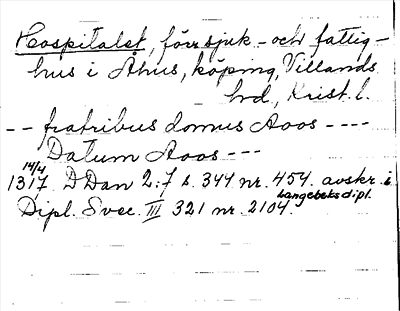 Hospitalet, förr sjuk- och fattig-
hus i Åhus, köping, Villands
hd, Krist. l.
-- fratribus domus Aoos ----
Datum Aoos ---
14/4
1317 D Dan 2:7 s. 344 nr. 454. avskr. i
Langebeks dipl.
Dipl. Svec. III 321 nr. 2104.